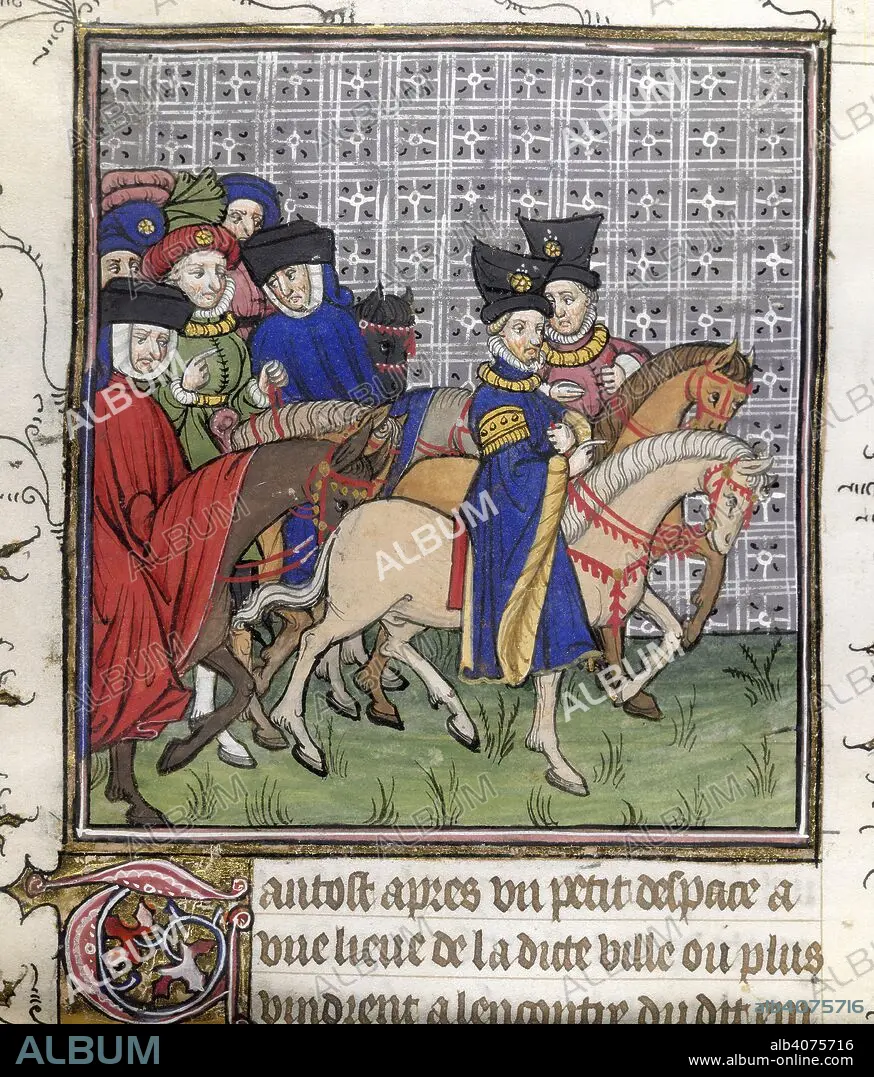 Tantost apres vn petit despace a
vne lieue de la dicte ville ou plus
vindrent a lencontre du dit em
alb4075716
ALBUM
alb4075716
album-online.com